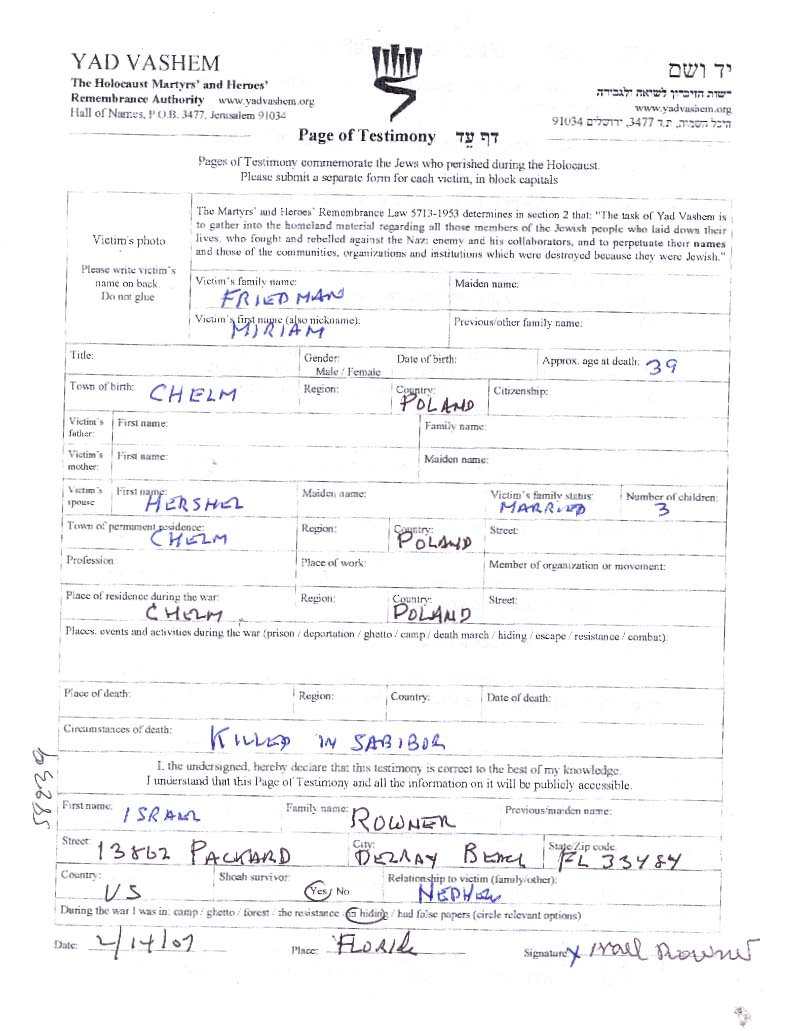 YAD VASHEM
The Holocaust Martyrs' and Heroes'
Remembrance Authority www.yadvashem.org
Hall of Names, P.O.B. 3477, Jerusalem 91034
יד ושם
רשות הזיכרון לשואה ולגבורה
www.yadvashem.org
היכל השמות, ת.ד 3477, ירושלים 91034
Page of Testimony דף עֵד
Pages of Testimony commemorate the Jews who perished during the Holocaust.
Please submit a separate form for each victim, in block capitals
Victim's photo
Please write victim's
name on back.
Do not glue
The Martyrs' and Heroes' Remembrance Law 5713-1953 determines in section 2 that: "The task of Yad Vashem is
to gather into the homeland material regarding all those members of the Jewish people who laid down their
lives, who fought and rebelled against the Nazi enemy and his collaborators, and to perpetuate their names
and those of the communities, organizations and institutions which were destroyed because they were Jewish."
Victim's family name: FRIEDMAN Maiden name:
Victim's first name (also nickname): MIRIAM Previous/other family name:
Title: Gender: Male / Female Date of birth: Approx. age at death: 39
Town of birth: CHELM Region: Country: POLAND Citizenship:
Victim's father: First name: Family name:
Victim's mother: First name: Maiden name:
Victim's spouse First name: HERSHEL Maiden name: Victim's family status: MARRIED Number of children: 3
Town of permanent residence: CHELM Region: Country: POLAND Street:
Profession: Place of work: Member of organization or movement:
Place of residence during the war: CHELM Region: Country: POLAND Street:
Places, events and activities during the war (prison / deportation / ghetto / camp / death march / hiding / escape / resistance / combat):
Place of death: Region: Country: Date of death:
Circumstances of death: KILLED IN SABIBOR
I, the undersigned, hereby declare that this testimony is correct to the best of my knowledge.
I understand that this Page of Testimony and all the information on it will be publicly accessible.
First name: ISRAEL Family name: ROWNER Previous/maiden name:
Street: 13862 PACKARD City: DELRAY BEACH State/Zip code: FL 33484
Country: US Shoah survivor: Yes / No Relationship to victim (family/other): NEPHEW
During the war I was in: camp / ghetto / forest / the resistance / in hiding / had false papers (circle relevant options)
Date: 2/14/07 Place: FLORIDA Signature: X Israel Rowner